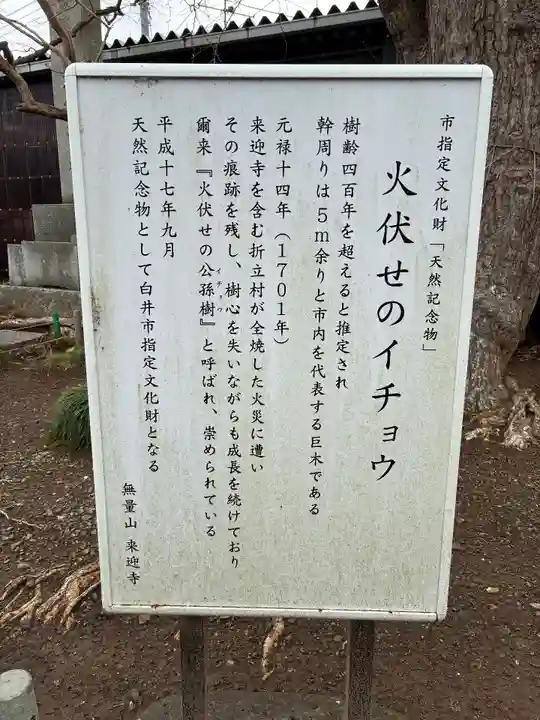 市指定文化財「天然記念物」
火伏せのイチョウ
樹齢四百年を超えると推定され
幹周りは5m余りと市内を代表する巨木である
元禄十四年(1701年)
来迎寺を含む折立村が全焼した火災に遭い
その痕跡を残し、樹心を失いながらも成長を続けており
爾来『火伏せの公孫樹』と呼ばれ、崇められている
イチョウ
平成十七年九月
天然記念物として白井市指定文化財となる
無量山 来迎寺